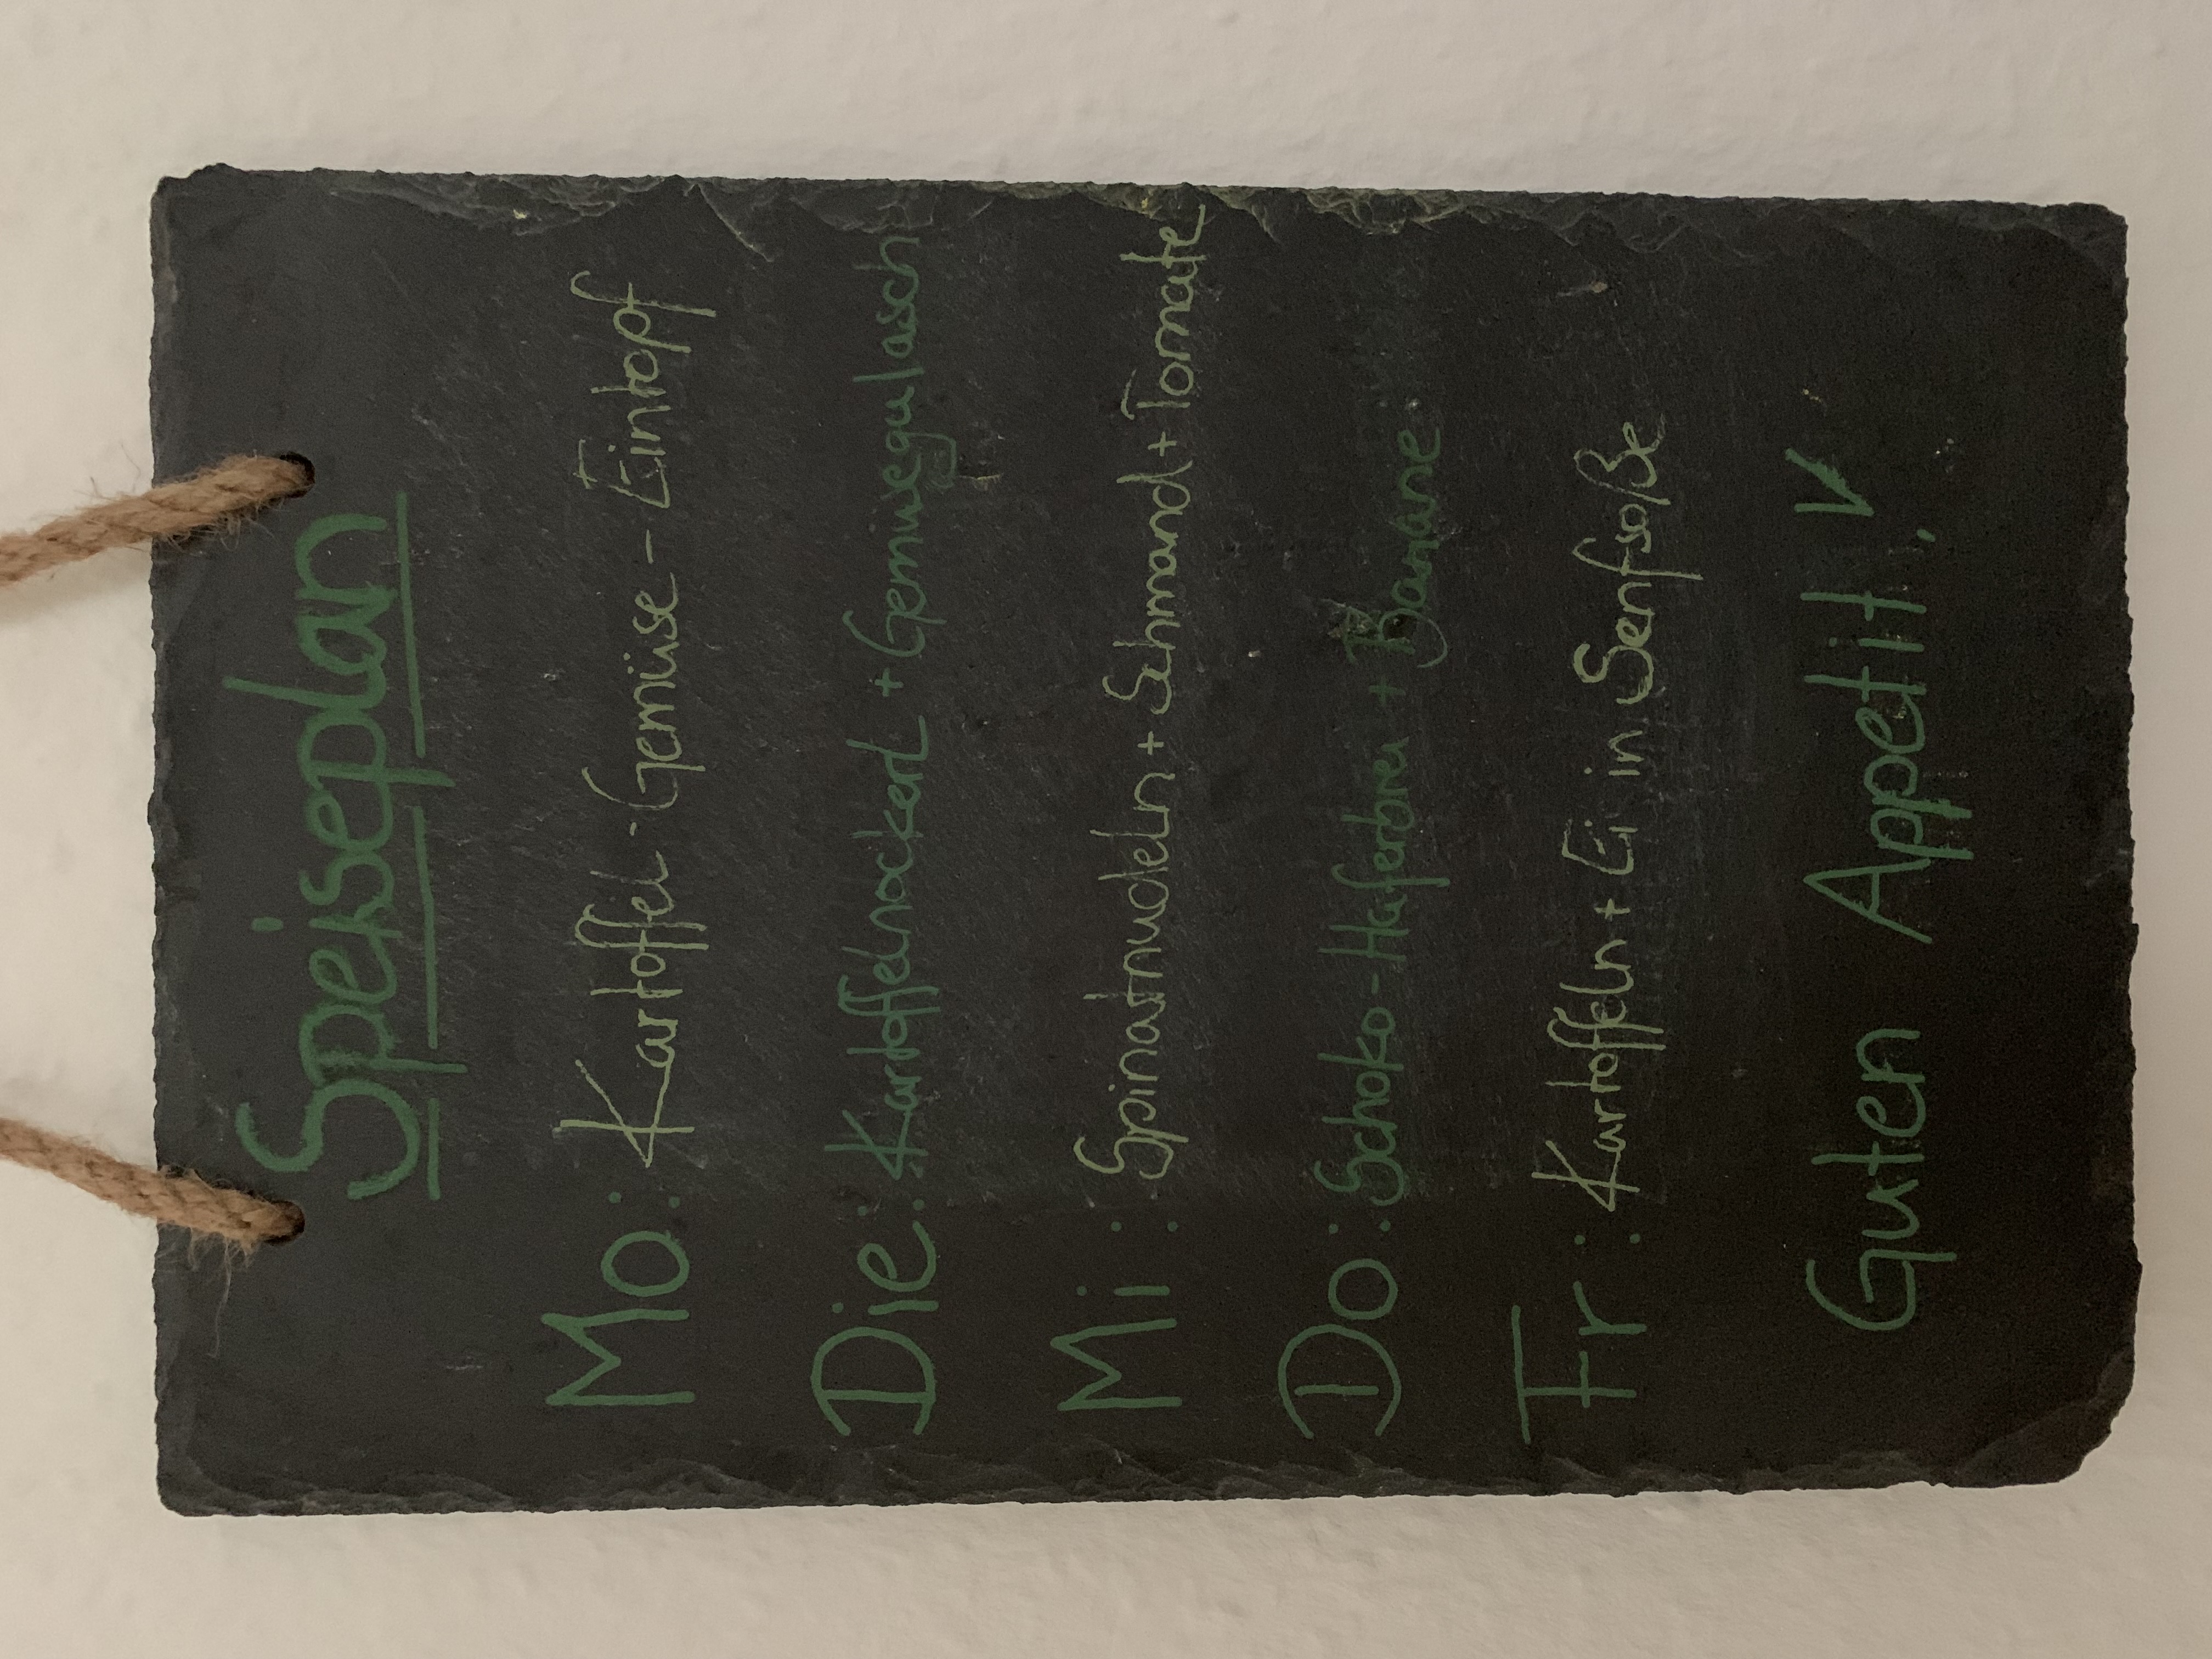 Speiseplan
Mo: Kartoffel-Gemüse-Eintopf
Die: Kartoffelnockerl + Gemüsegulasch
Mi: Spinatnudeln + Schmand + Tomate
Do: Schoko-Haferbrei + Banane
Fr: Kartoffeln + Ei in Senfsoße
Guten Appetit!